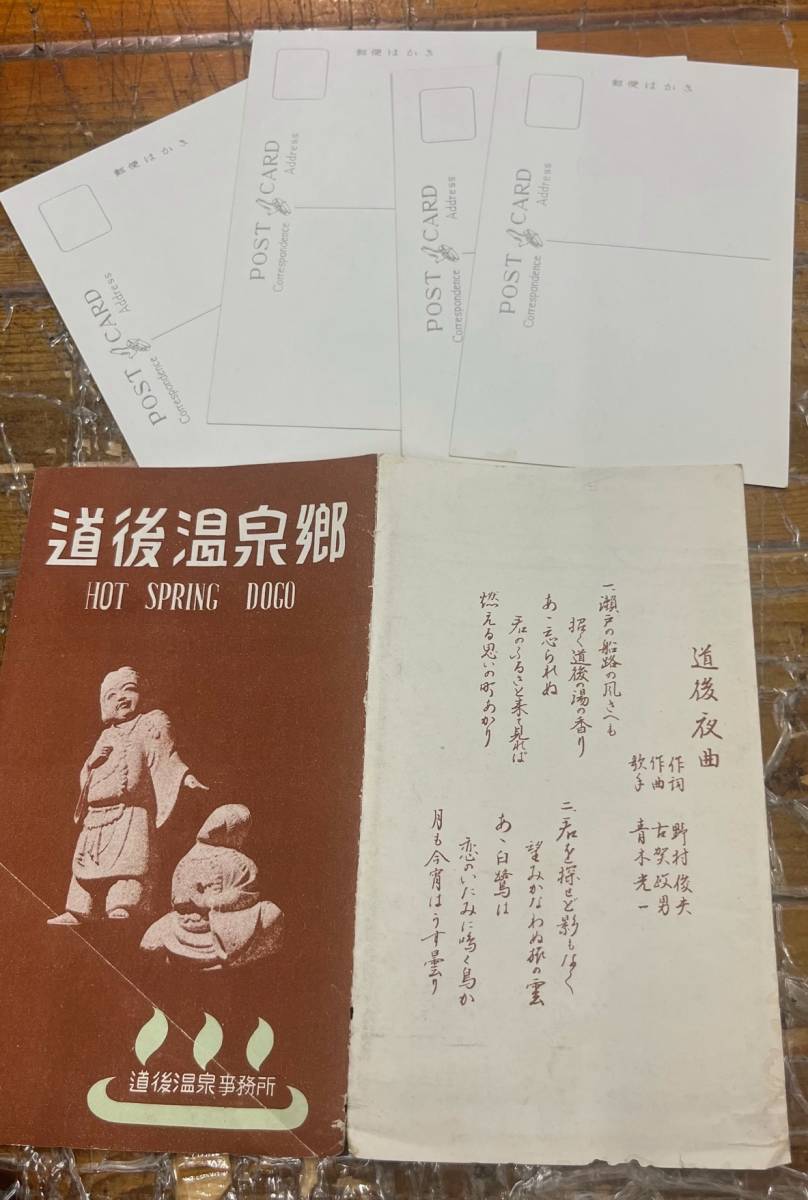 郵便はがき
POST CARD
Address
Correspondence
郵便はがき
POST CARD
Address
Correspondence
POST CARD
Address
Correspondence
郵便はがき
POST CARD
Address
Correspondence
道後温泉郷
HOT SPRING DOGO
道後温泉事務所
道後夜曲
作詞 野村俊夫
作曲 古賀政男
歌手 青木光一
一、瀬戸の船路の風さへも
招く道後の湯の香り
あゝ忘られぬ
君のふるさと来て見れば
燃える思いの町あかり
二、君を探せど影もなく
望みかなわぬ旅の雲
あゝ白鷺は
恋のいたみに鳴く鳥か
月も今宵はうす曇り